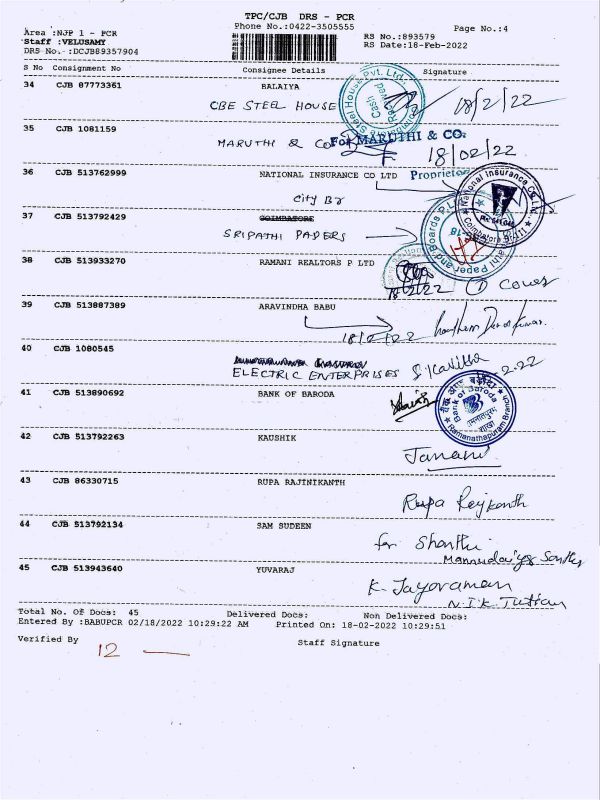 TPC/CJB DRS - PCR
Area :NJP 1 - PCR
Phone No.:0422-3505555
Page No.:4
Staff :VELUSAMY
RS No.:893579
DRS No.-:DCJB89357904
RS Date:18-Feb-2022
S No Consignment No Consignee Details Signature
34 CJB 87773361 BALAIYA
CBE STEEL HOUSE 18/2/22
Steel House Pvt. Ltd.
Cash
35 CJB 1081159
MARUTHI & CO For MARUTHI & CO.
18/02/22
36 CJB 513762999 NATIONAL INSURANCE CO LTD Proprietor
National Insurance Co. Ltd.
City Br
37 CJB 513792429 COIMBATORE
SRIPATHI PAPERS
Paper and Boards P
38 CJB 513933270 RAMANI REALTORS P LTD
18/2/22
39 CJB 513887389 ARAVINDHA BABU
18/2/22
40 CJB 1080545
ELECTRIC ENTERPRISES S. Kavitha
41 CJB 513890692 BANK OF BARODA
Bank of Baroda
Ramanathapuram Branch
42 CJB 513792263 KAUSHIK
43 CJB 86330715 RUPA RAJINIKANTH
Rupa
44 CJB 513792134 SAM SUDEEN
for Shanthi
45 CJB 513943640 YUVARAJ
K. Jayaraman
Total No. Of Docs: 45 Delivered Docs: Non Delivered Docs:
Entered By :BABUPCR 02/18/2022 10:29:22 AM Printed On: 18-02-2022 10:29:51
Verified By Staff Signature
12